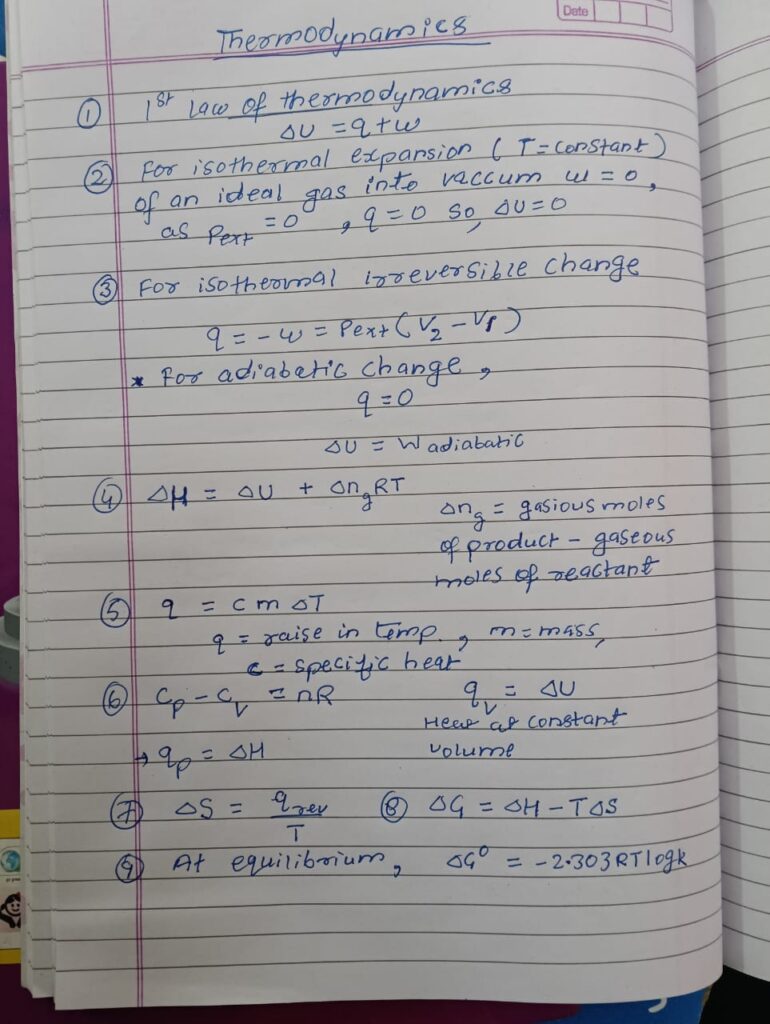 Date
Thermodynamics
① 1st Law of thermodynamics
ΔU = q + w
② For isothermal expansion ( T = constant )
of an ideal gas into vaccum w = 0,
as Pext = 0 , q = 0 so, ΔU = 0
③ For isothermal irreversible change
q = - w = Pext ( V₂ - V₁ )
* For adiabatic change,
q = 0
ΔU = W adiabatic
④ ΔH = ΔU + Δn_gRT
Δn_g = gasious moles
of product - gaseous
moles of reactant
⑤ q = c m ΔT
q = raise in temp. , m = mass,
c = specific heat
⑥ Cp - Cv = nR
qv = ΔU
Heat at constant
volume
→ qp = ΔH
⑦ ΔS = qrev / T ⑧ ΔG = ΔH - TΔS
⑨ At equilibrium, ΔG⁰ = -2.303RT logk